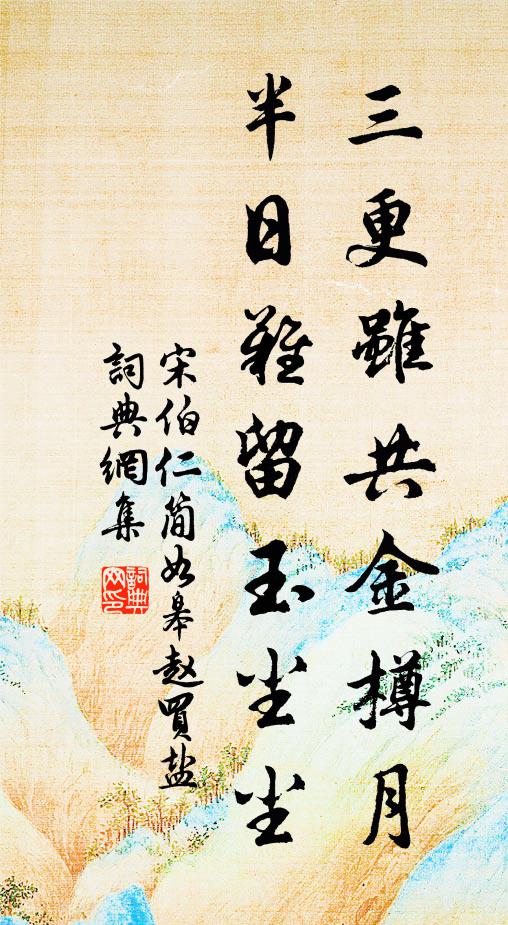 三更雖共金樽月
半日難留玉尘尘
宋伯仁简如皋赵買盐
詞典網集
詞典网印